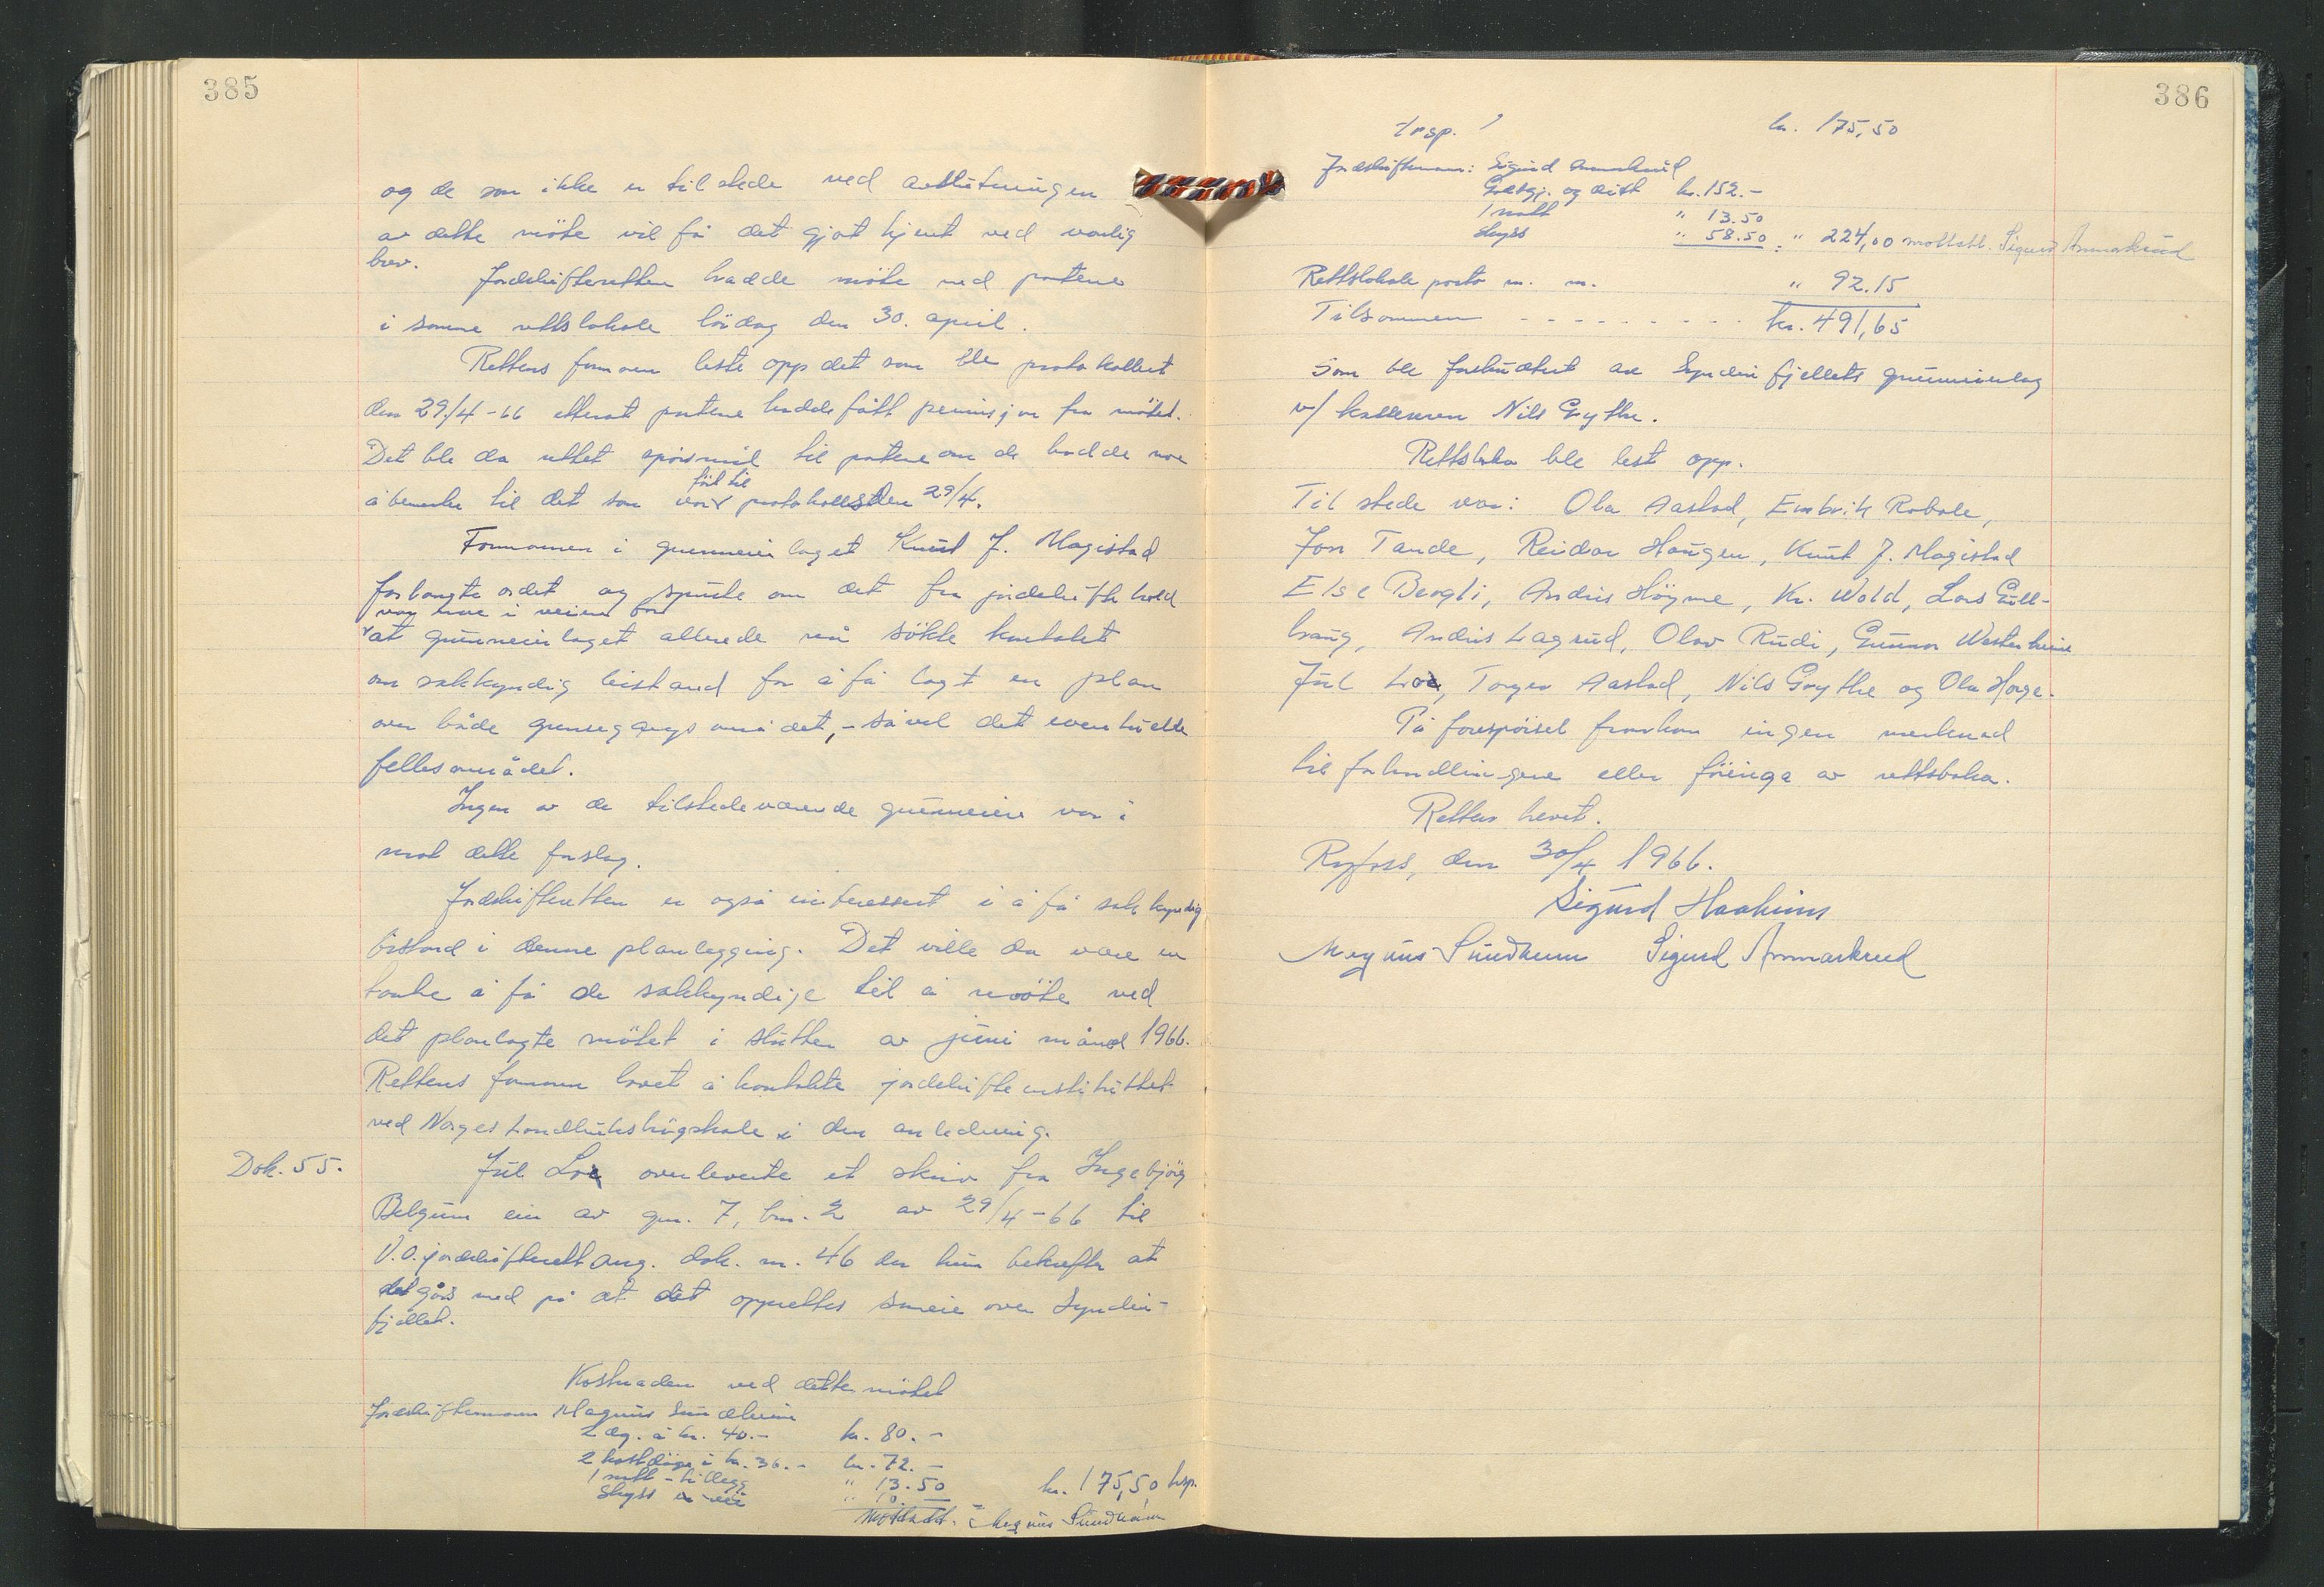 385
og de som ikke er til stede ved avslutningen
av dette möte vil få det gjort kjent ved vanlig
brev.
Jordskifteretten hadde möte med partene
i samme rettslokale lördag den 30. april.
Rettens formann leste opp det som ble protokollert
den 29/4-66 etterat partene hadde fått permisjon fra mötet.
Det ble da rettet spörsmål til partene om de hadde noe
å bemerke til det som var fört til protokolls den 29/4.
Formannen i grunneierlaget Knut J. Magistad
forlangte ordet og spurte om det fra jordskifte hold
var noe i veien for
at grunneierlaget allerede nå sökte kontaktet
om sakkyndig bistand for å få lagt en plan
over både grensegangs området, - såvel det eventuelle
fellesområdet.
Ingen av de tilstedeværende grunneiere var i
mot dette forslag.
Jordskifteretten er også interessert i å få sakkyndig
bistand i denne planlegging. Det ville da være en
tanke å få de sakkyndige til å möte ved
det planlagte mötet i slutten av juni måned 1966.
Rettens formann lovet å kontakte jordskifteinstituttet
ved Norges Landbrukshögskole i den anledning.
Dok. 55.
Jul Loe overleverte et skriv fra Ingebjörg
Belgum eier av gnr. 7, bnr. 2 av 29/4-66 til
V.O. jordskifterett ang. dok. nr. 46 der hun bekrefter at
det gås med på at det opprettes sameie over Syndin-
fjellet.
Kostnaden ved dette mötet
Jordskiftemann Magnus Sundheim
2 dg. à kr. 40.- kr. 80.-
2 kostdöga à kr. 36.- kr. 72.-
1 natt-tillegg " 13.50
Skyss " 10.- kr. 175,50 trsp.
Mottatt. Magnus Sundheim
386
Trsp. kr. 175,50
Jordskiftemann: Sigurd Ammarkrud
Godtgj. og diett kr. 152.-
1 natt " 13.50
Skyss " 58.50 : " 224,00 mottatt. Sigurd Ammarkrud
Rettslokale porto m. m. " 92.15
Tilsammen - - - - - - - - - kr. 491,65
Som ble forskuttert av Syndinfjellets grunneierlag
v/ kasseren Nils Grythe.
Rettsboka ble lest opp.
Til stede var: Ola Aastad, Embrik Robole,
Jon Tande, Reidar Haugen, Knut J. Magistad
Else Bergli, Andris Höyme, Kr. Wold, Lars Gull-
haug, Andris Lagrud, Olav Rudi, Gunnar Westerheim
Jul Loe, Torger Aastad, Nils Grythe og Ola Horge.
På forespörsel framkom ingen merknad
til forhandlingene eller föringa av rettsboka.
Retten hevet.
Ryfoss, den 30/4 1966.
Sigurd Haaheim
Magnus Sundheim Sigurd Ammarkrud